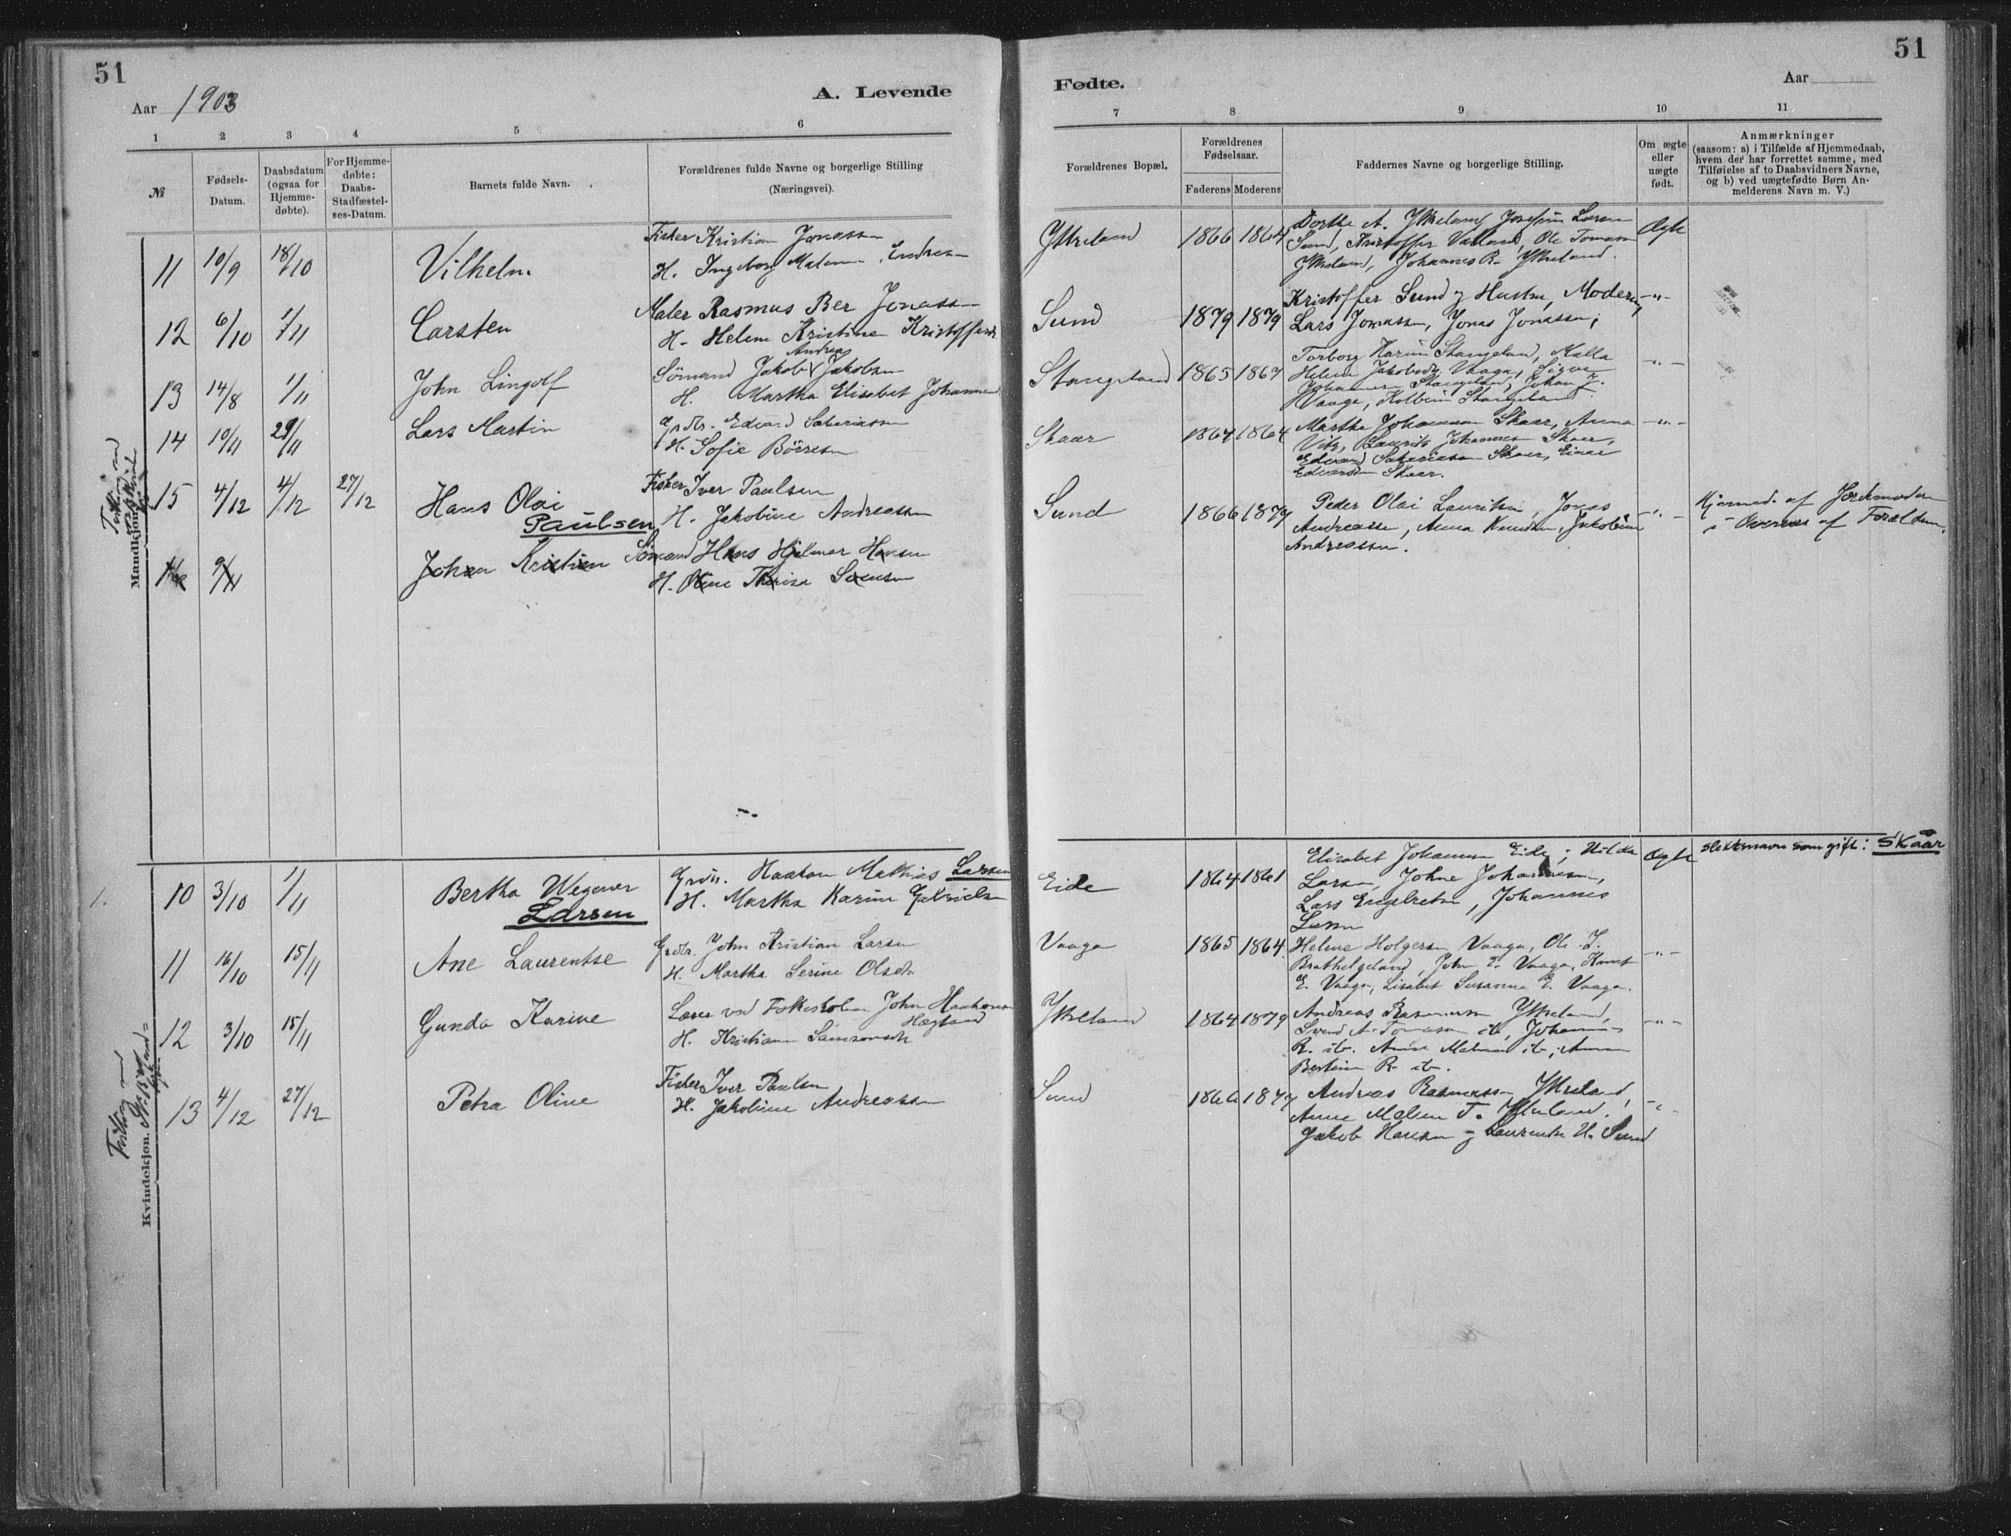 51
Aar 1903
A. Levende
1 2 3 4 5 6
№
Fødsels-
Datum.
Daabsdatum
(ogsaa for
Hjemme-
døbte).
For Hjemme-
døbte:
Daabs-
Stadfæstel-
ses-Datum.
Barnets fulde Navn.
Forældrenes fulde Navne og borgerlige Stilling
(Næringsvei).
Mandkjøn.
11 10/9 18/10 Vilhelm
Fisker Kristian Jonassen
H. Ingeborg Malene Endresen
12 6/10 1/11 Carsten
Maler Rasmus Ber Jonassen
H. Helene Kristine Kristoffersdr
13 14/8 1/11 John Lingolf
Andreas
Sömand Jakob Jakobsen
H. Martha Elisabet Johannesd
14 10/11 29/11 Lars Martin
Grdbr. Edvard Sakariassen
H. Sofie Börresen
15 4/12 4/12 27/12 Hans Olai
Paulsen
Fisker Iver Paulsen
H. Jakobine Andreassen
9/11 Johan Kristian
Sömand Hans Hjalmar Hansen
H. Oline Therise Sörensen
Kvindekjøn.
1.
10 3/10 1/11 Bertha Wegener
Larsen
Grdbr. Haakon Mathias Larsen
H. Martha Karine Gabrielsen
11 16/10 15/11 Ane Laurentse
Grdbr. John Kristian Larsen
H. Martha Serine Olsdtr
12 3/10 15/11 Gunda Karine
Lærer ved Folkeskolen John Haakonsen
Hægland
H. Kristiane Samsonsdtr
13 4/12 27/12 Petra Oline
Fisker Iver Paulsen
H. Jakobine Andreassen
51
Fødte.
Aar
7 8 9 10 11
Forældrenes Bopæl.
Forældrenes
Fødselsaar.
Faderens Moderens
Faddernes Navne og borgerlige Stilling.
Om ægte
eller
uægte
født.
Anmærkninger
(saasom: a) i Tilfælde af Hjemmedaab,
hvem der har forrettet samme, med
Tilføielse af to Daabsvidners Navne,
og b) ved uægtefødte Børn An-
melderens Navn m. V.)
Ytreland 1866 1864
Dorthe A. Ytreland, Josefine Larsen
Sund, Kristoffer Valland, Ole Tomassen
Ytreland, Johannes R. Ytreland.
Ægte
Sund 1879 1879
Kristoffer Sund og Hustru, Moderen,
Lars Jonassen, Jonas Jonassen;
-"-
Stangeland 1865 1867
Torborg Karine Stangeland, Malla
Helene Jakobsdtr Vaaga, Sigve
Johannesen Stangeland, Johan J.
Vaaga, Kolbein Stangeland.
-"-
Skaar 1864 1864
Marthe Johannessen Skaar, Anna
Vik, Laurits Johannessen Skaar,
Edvard Sakariassen Skaar, Einar
Edvardsen Skaar.
-"-
Sund 1866 1879
Peder Olai Lauritsen, Jonas
Andreassen, Anna Knudsen, Jakobine
Andreassen.
-"-
Hjemmed. af Jordemoderen
i Overvær af Forældrene.
Eide 1864 1861
Elisabet Johannessen Eide; Hilda
Larsen, Johne Johannesen,
Lars Engelsen, Johannes
Ægte
slektsnavn som gift: Skaar
Vaaga 1865 1864.
Helene Holgersen Vaaga, Ole J.
Brathelgeland, John E. Vaaga, Knut
E. Vaaga, Lisabet Susanna E. Vaaga.
-"-
Ytreland 1864 1879
Andreas Rasmussen Ytreland,
Svend A. Tomassen ib, Johannes
R. ib. Anne Malene ib; Anna
Bertine R. ib.
-"-
Sund 1866 1879
Andreas Rasmussen Ytreland,
Anne Malene T. Ytreland.
Jakob Hansen og Laurentse H. Sund
-"-